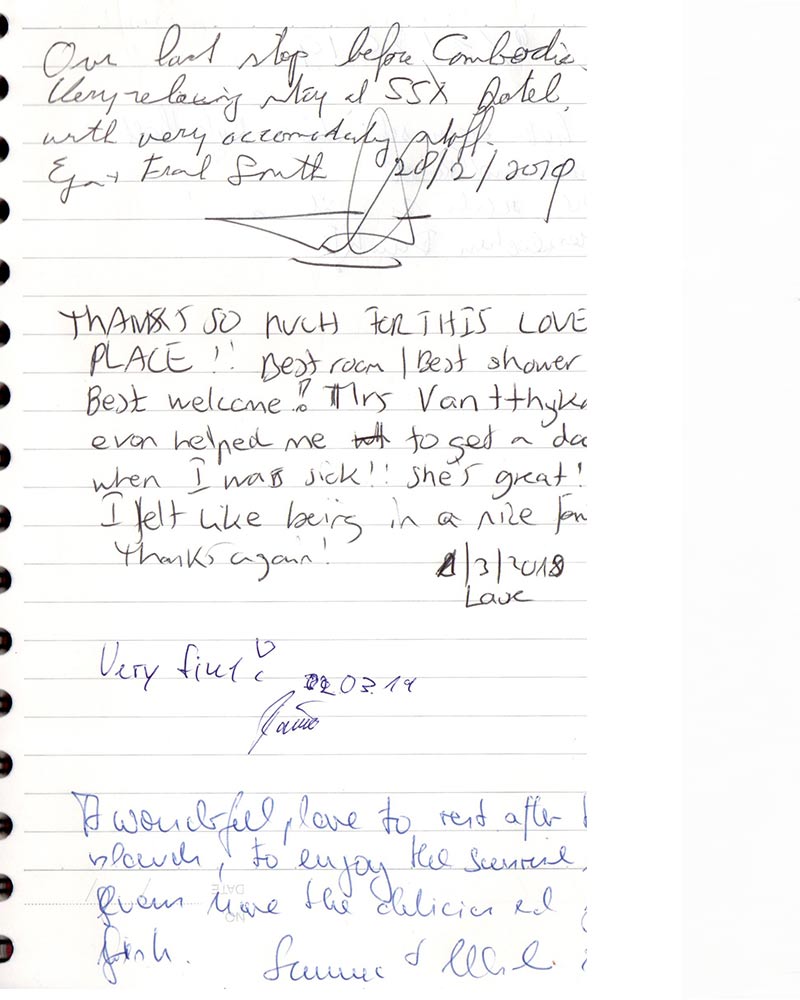 Our last stop before Cambodia
Very relaxing stay at SSX Hotel,
with very accomodaty staff.
Smith 28/2/2019
THANKS SO MUCH FOR THIS LOVE
PLACE!! Best room | Best shower
Best welcome!! Mrs Van tthyk
even helped me to get a da
when I was sick!! she's great!
I felt like being in a nice fam
Thanks again!
1/3/2018
Very fine!
02 03.19
A wonderful, to rest after
to enjoy the sunrise,
have the delicies red
fish.
NO
DATE